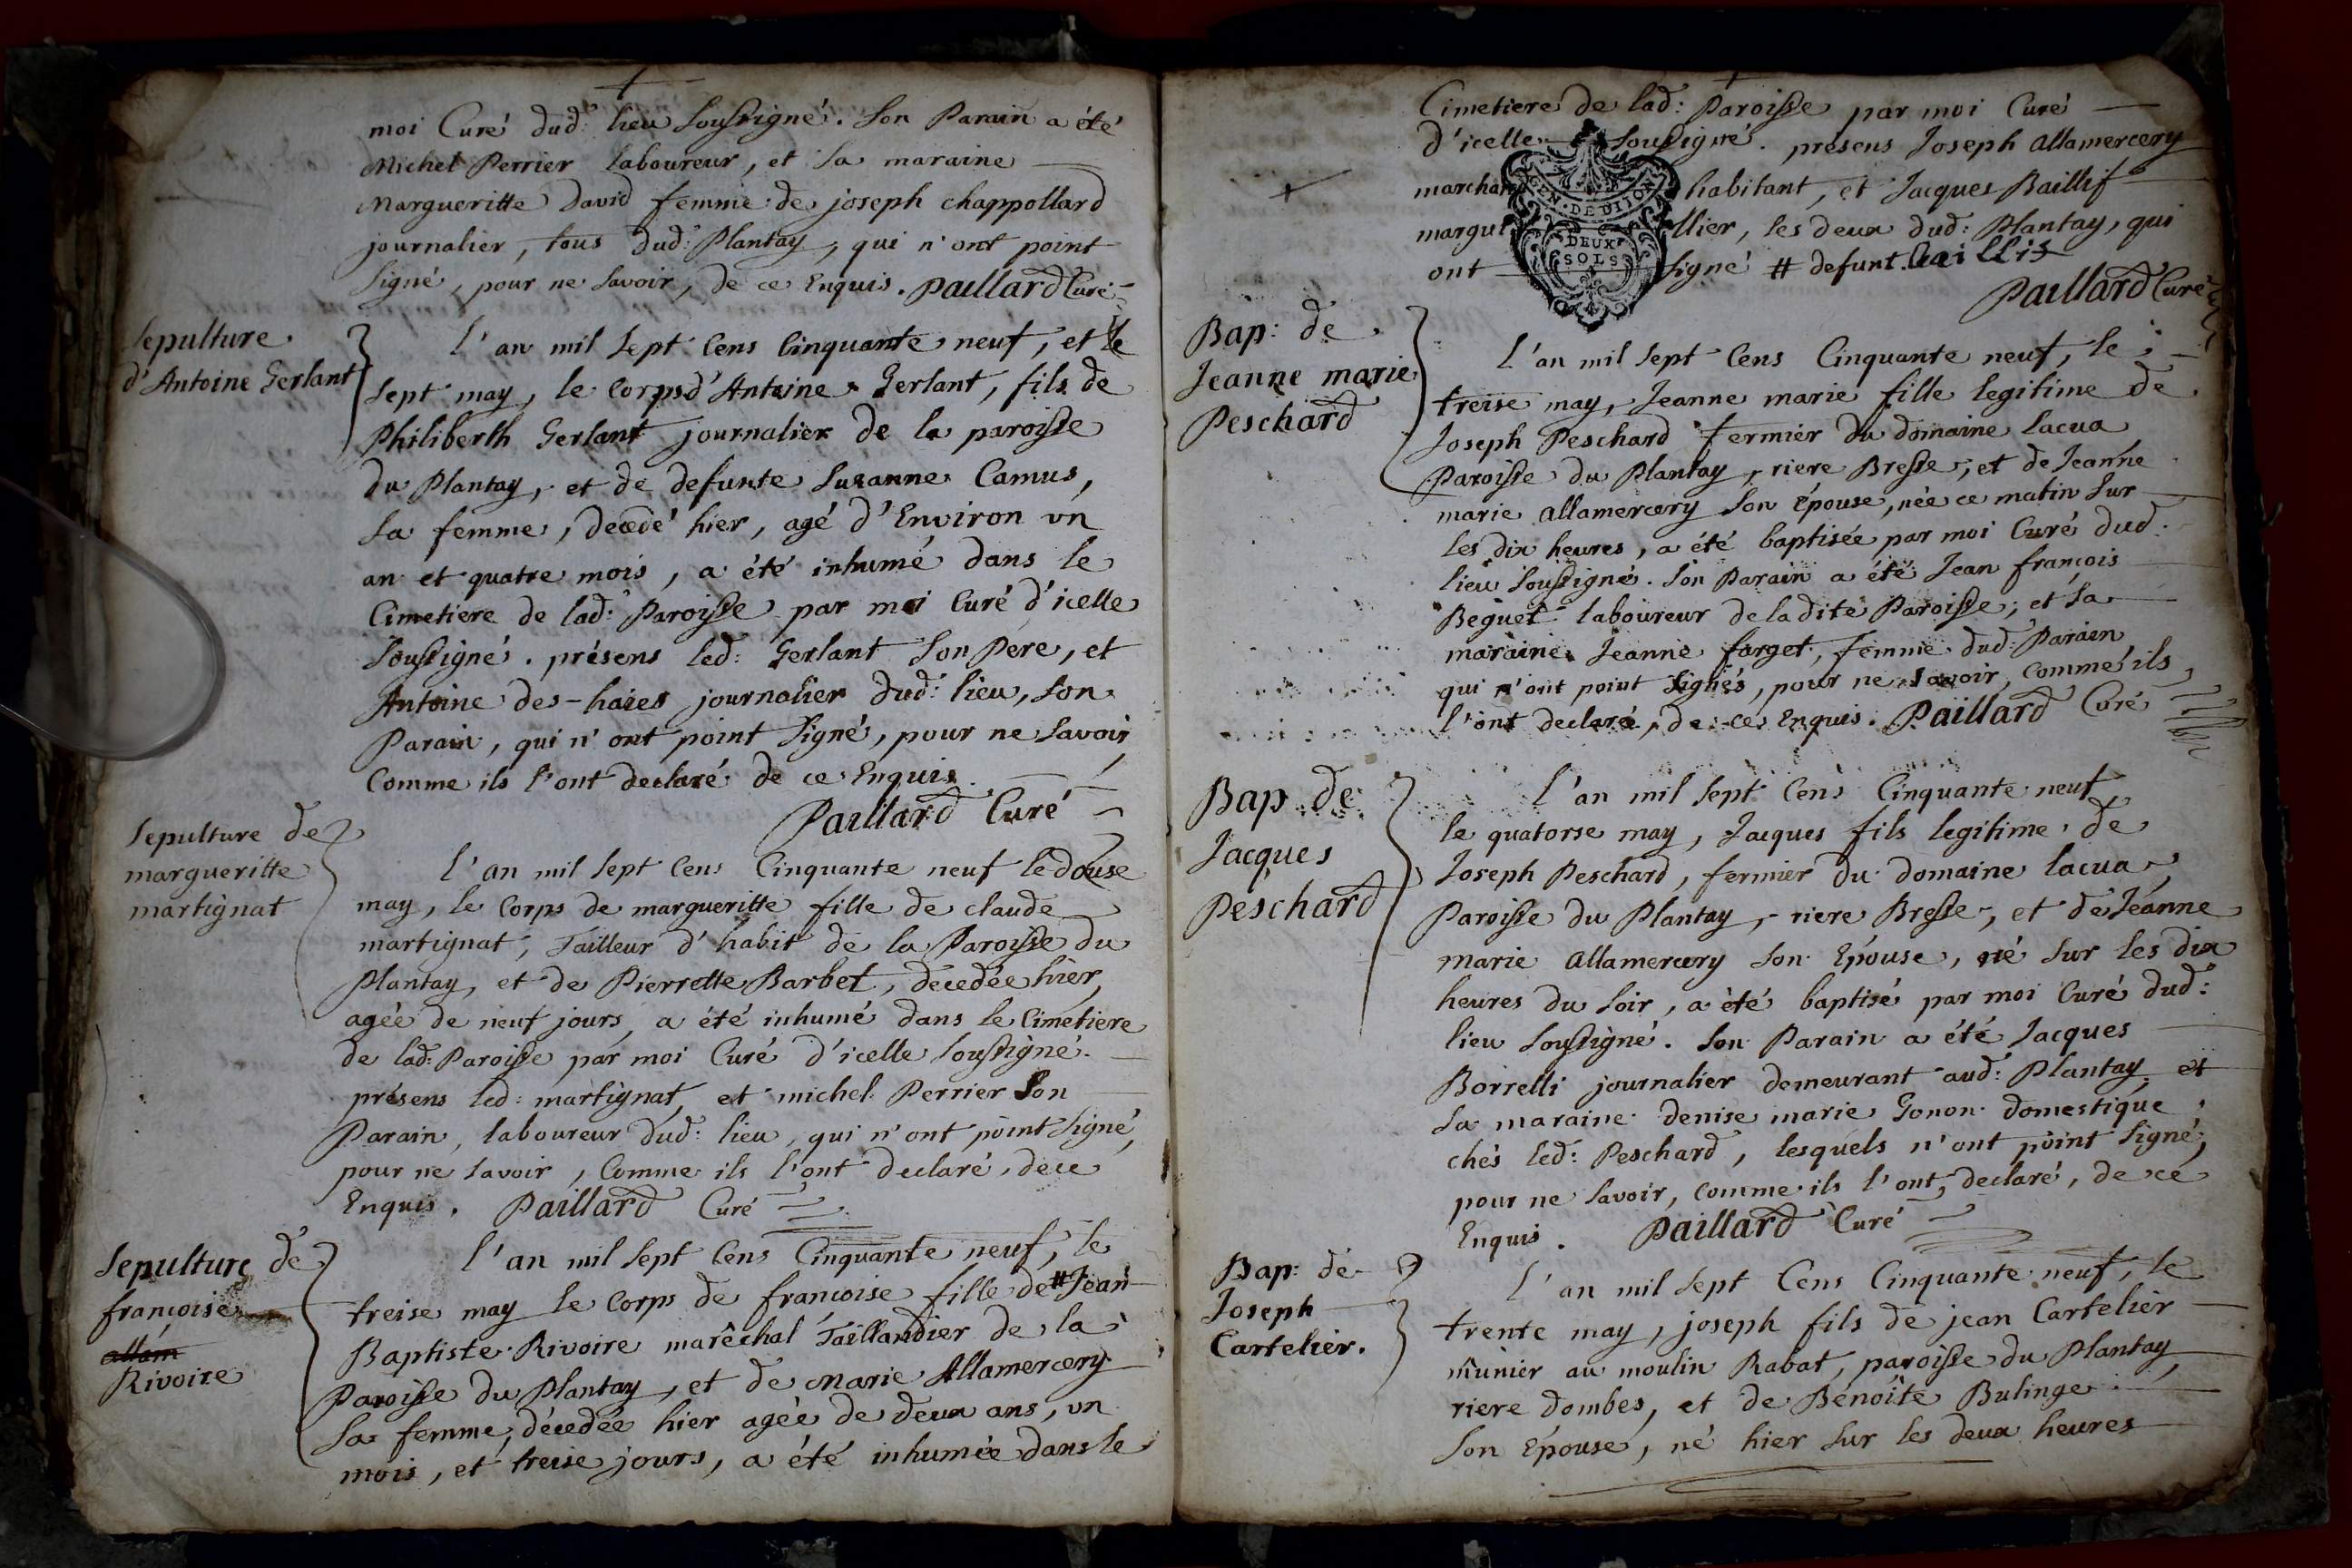 moi Curé dud: lieu soussigné. son Parain a été
Michel Perrier laboureur, et sa maraine
Margueritte David femme de joseph chappollard
journalier, tous dud: Plantay, qui n'ont point
signé, pour ne savoir, de ce Enquis. Paillard Curé
Sepulture
d'Antoine Gerlant
l'an mil sept cens cinquante neuf, et le
sept may, le corps d'Antoine Gerlant, fils de
Philiberth Gerlant journalier de la paroisse
du Plantay, et de defunte Susanne Camus,
sa femme, decedé hier, agé d'Environ un
an et quatre mois, a été inhumé dans le
Cimetiere de lad: Paroisse par moi Curé d'icelle
soussigné. présens led: Gerlant son Pere, et
Antoine des-haies journalier dud: lieu, son
Parain, qui n'ont point signé, pour ne savoir,
comme ils l'ont declaré de ce Enquis.
Paillard Curé
Sepulture de
margueritte
martignat
l'an mil sept cens cinquante neuf le douse
may, le corps de margueritte fille de claude
martignat, Tailleur d'habit de la Paroisse du
Plantay, et de Pierrette Barbet, decedée hier,
agée de neuf jours, a été inhumé dans le Cimetiere
de lad: Paroisse par moi Curé d'icelle soussigné.
présens led: martignat, et michel Perrier son
Parain, laboureur dud: lieu, qui n'ont point signé,
pour ne savoir, comme ils l'ont declaré, de ce
Enquis. Paillard Curé
Sepulture de
françoise
allam
Rivoire
l'an mil sept cens cinquante neuf, le
treise may le corps de francoise fille de # Jean
Baptiste Rivoire marêchal Taillandier de la
Paroisse du Plantay, et de Marie Allamercery
sa femme, décedée hier agée de deux ans, un
mois, et treise jours, a été inhumée dans le
Cimetiere de lad: Paroisse par moi Curé
d'icelle soussigné. présens Joseph allamercery
marchand habitant, et Jacques Baillif
marguillier, les deux dud: Plantay, qui
ont signé # defunt. baillif
Paillard Curé
GEN. DE DIJON
DEUX
SOLS
Bap: de
Jeanne marie
Peschard
l'an mil sept cens Cinquante neuf, le
treise may, Jeanne marie fille legitime de
Joseph Peschard fermier du domaine lacua
Paroisse du Plantay, riere Bresse, et de Jeanne
marie allamercery son épouse, née ce matin sur
les dix heures, a été baptisée par moi Curé dud:
lieu soussigné. son Parain a été Jean françois
Beguet laboureur de ladite Paroisse, et sa
maraine Jeanne farget, femme dud: Parain
qui n'ont point signés, pour ne savoir, comme ils
l'ont declaré, de ce Enquis. Paillard Curé
Bap: de
Jacques
Peschard
l'an mil sept cens Cinquante neuf
le quatorse may, Jacques fils legitime de
Joseph Peschard, fermier du domaine lacua,
Paroisse du Plantay, riere Bresse, et de Jeanne
marie allamercery son Epouse, né sur les dix
heures du soir, a été baptisé par moi Curé dud:
lieu soussigné. son Parain a été Jacques
Borrelli journalier demeurant aud: Plantay, et
sa maraine denise marie Gonon domestique
chés led: Peschard, lesquels n'ont point signé,
pour ne savoir, comme ils l'ont declaré, de ce
Enquis. Paillard Curé
Bap: de
Joseph
Cartelier.
l'an mil sept Cens Cinquante neuf, le
trente may, joseph fils de jean Cartelier
mûnier au moulin Rabat, paroisse du Plantay,
riere dombes, et de Benoîte Bulinge
son épouse, né hier sur les deux heures